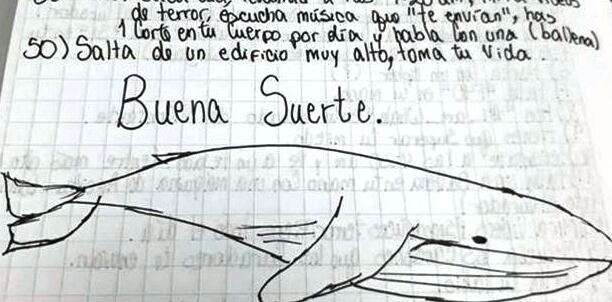 de terror, escucha música que "te envían", has
1 Corte en tu Cuerpo por día y habla con una (ballena)
50) Salta de un edificio muy alto, toma tu vida.
Buena Suerte.